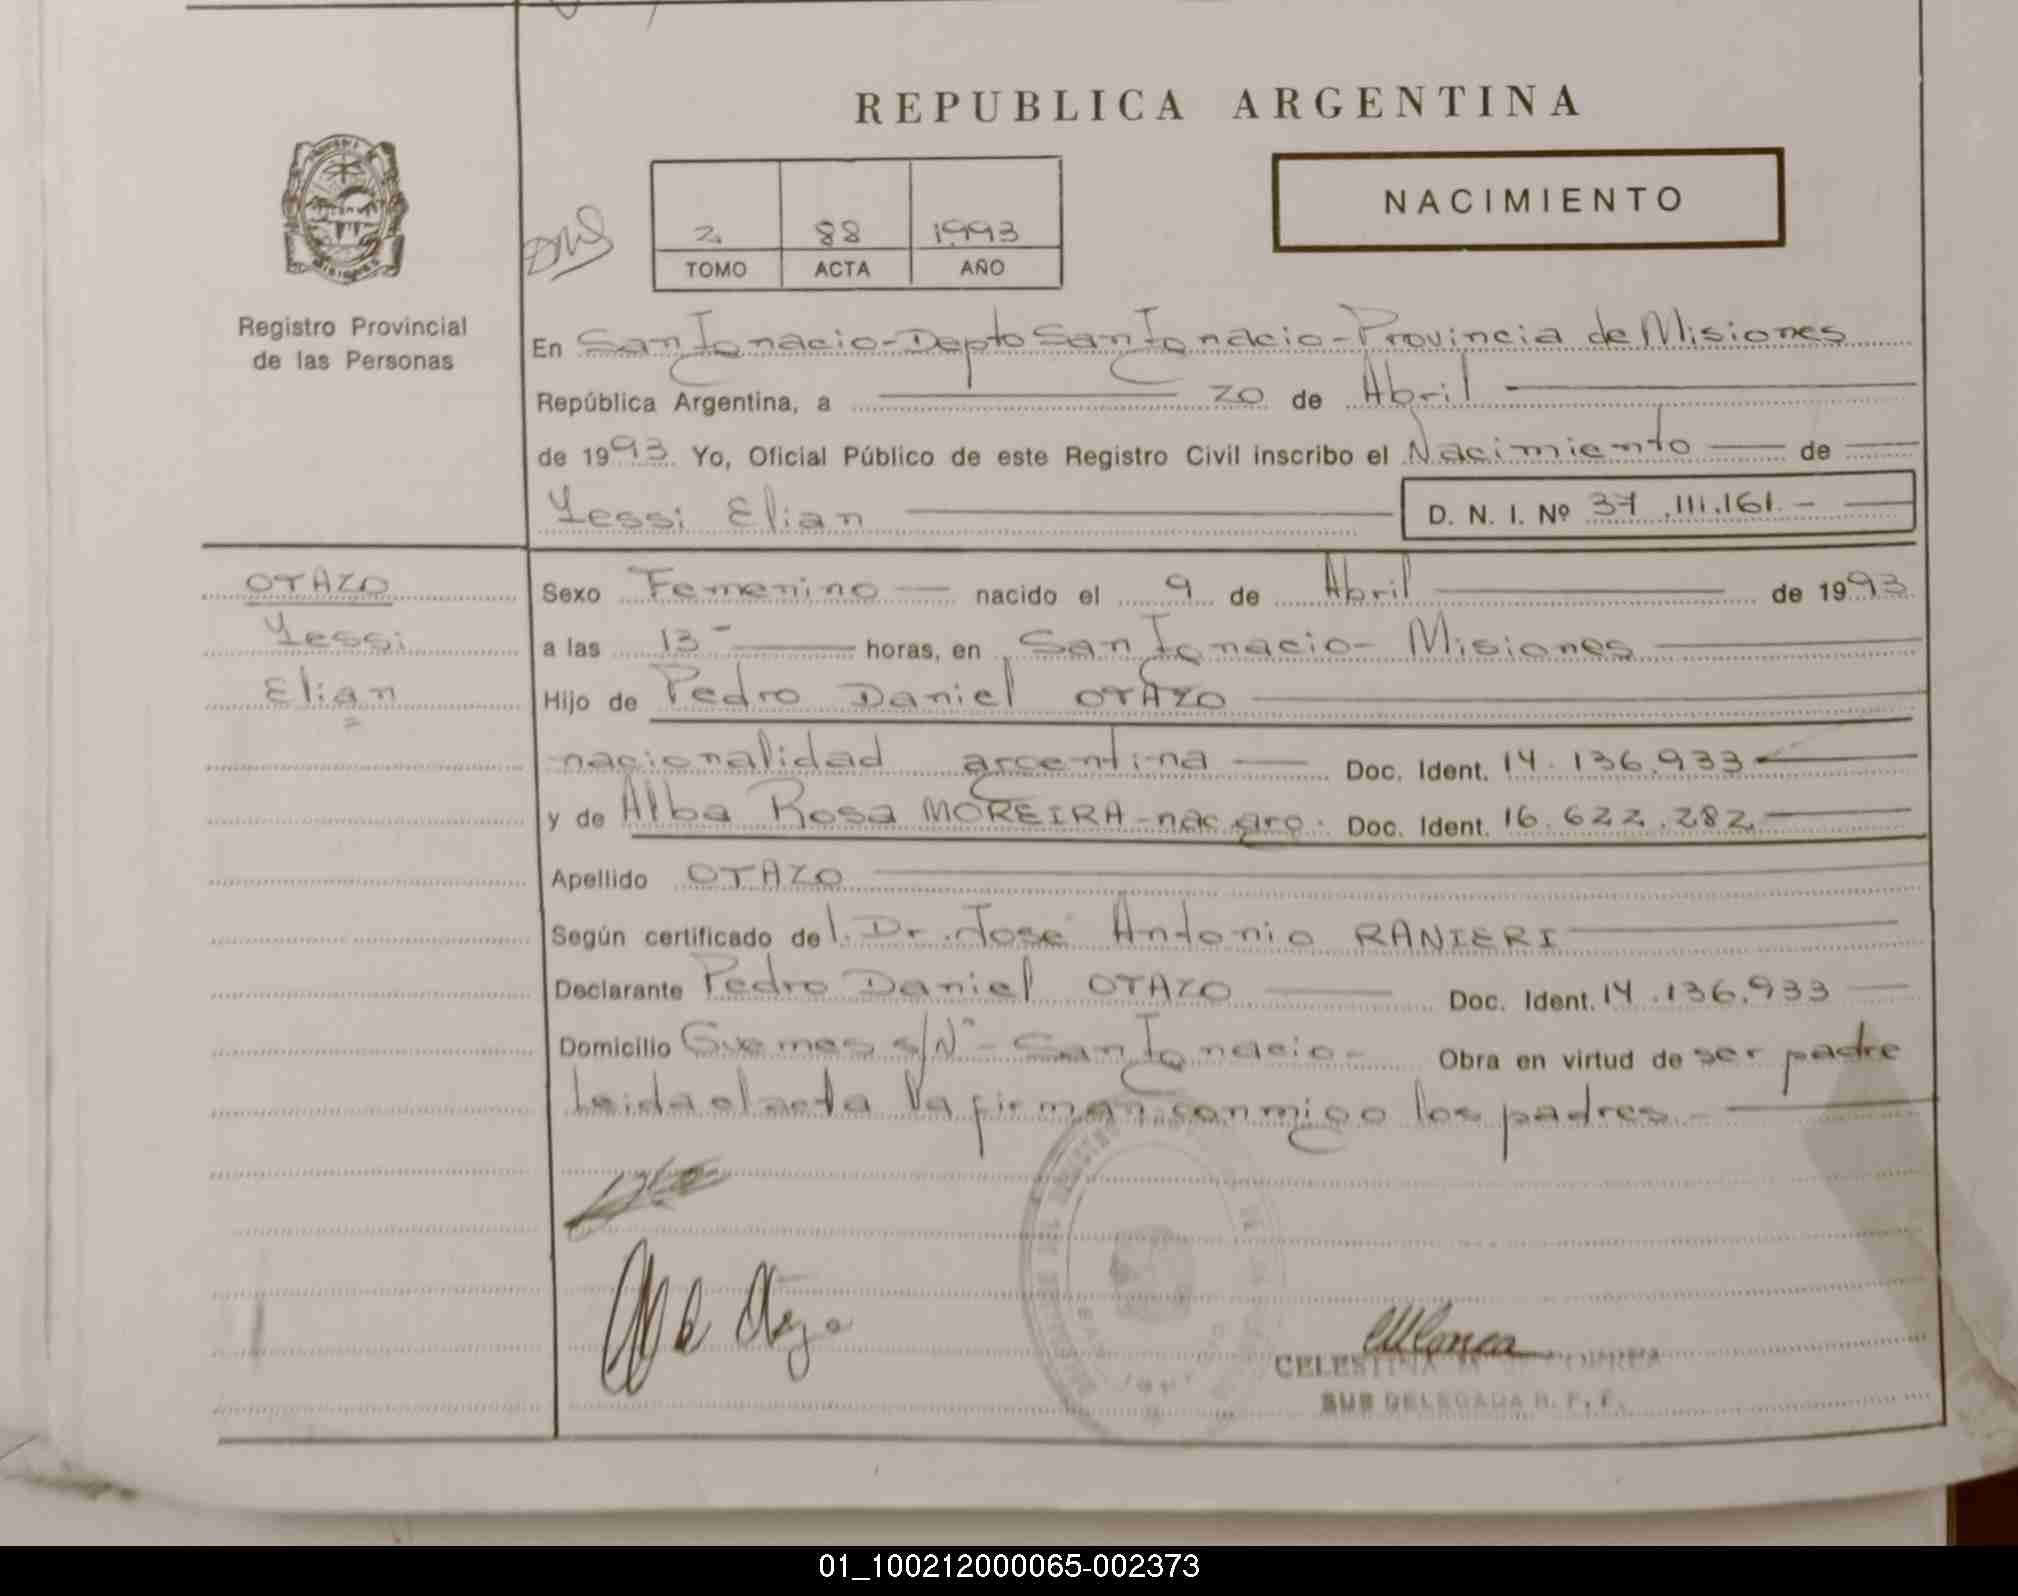 REPUBLICA ARGENTINA
NACIMIENTO
2 88 1993
TOMO ACTA AÑO
Registro Provincial
de las Personas
En San Ignacio-Depto San Ignacio-Provincia de Misiones
República Argentina, a 20 de Abril
de 1993. Yo, Oficial Público de este Registro Civil inscribo el Nacimiento de
Yessi Elian
D. N. I. Nº 37.111.161.-
OTAZO
Yessi
Elian
Sexo Femenino nacido el 9 de Abril de 1993
a las 13- horas, en San Ignacio- Misiones
Hijo de Pedro Daniel OTAZO
nacionalidad argentina Doc. Ident. 14.136.933
y de Alba Rosa MOREIRA-nac.arg. Doc. Ident. 16.622.282
Apellido OTAZO
Según certificado del. Dr. José Antonio RANIERI
Declarante Pedro Daniel OTAZO Doc. Ident. 14.136.933
Domicilio Guemes s/Nº- San Ignacio- Obra en virtud de ser padre
Leida el acta la firman conmigo los padres.-
CELESTINA CORREA
SUB DELEGADA R. P. P.
01_100212000065-002373